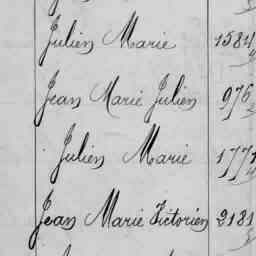 Julien Marie 1584
Jean Marie Julien 976
Julien Marie 1771
Jean Marie Victorien 2181